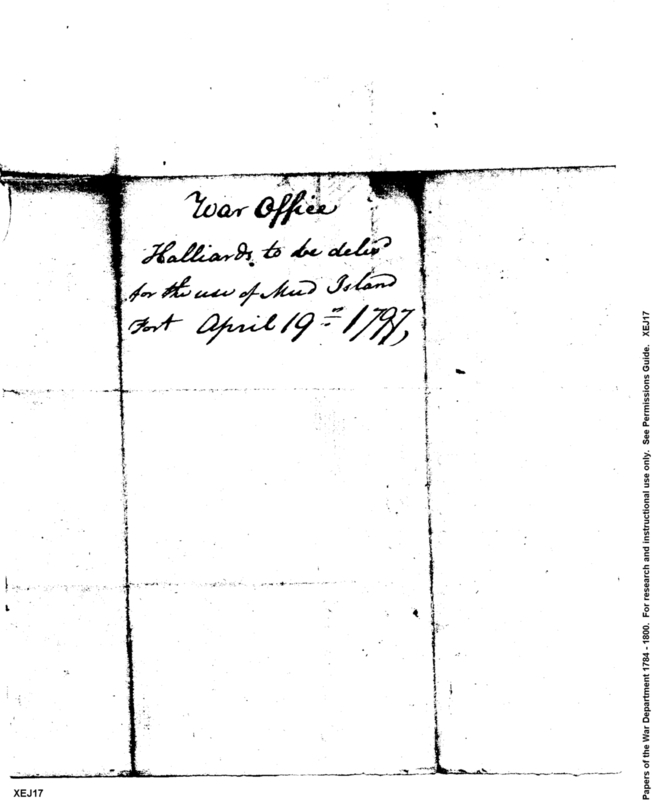 War Office
Halliards, to be delivd
for the use of Mud Island
Fort April 19th 1797,
Papers of the War Department 1784 - 1800. For research and instructional use only. See Permissions Guide. XEJ17
XEJ17